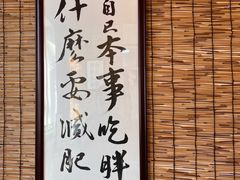 自己本事吃胖
什麼要減肥